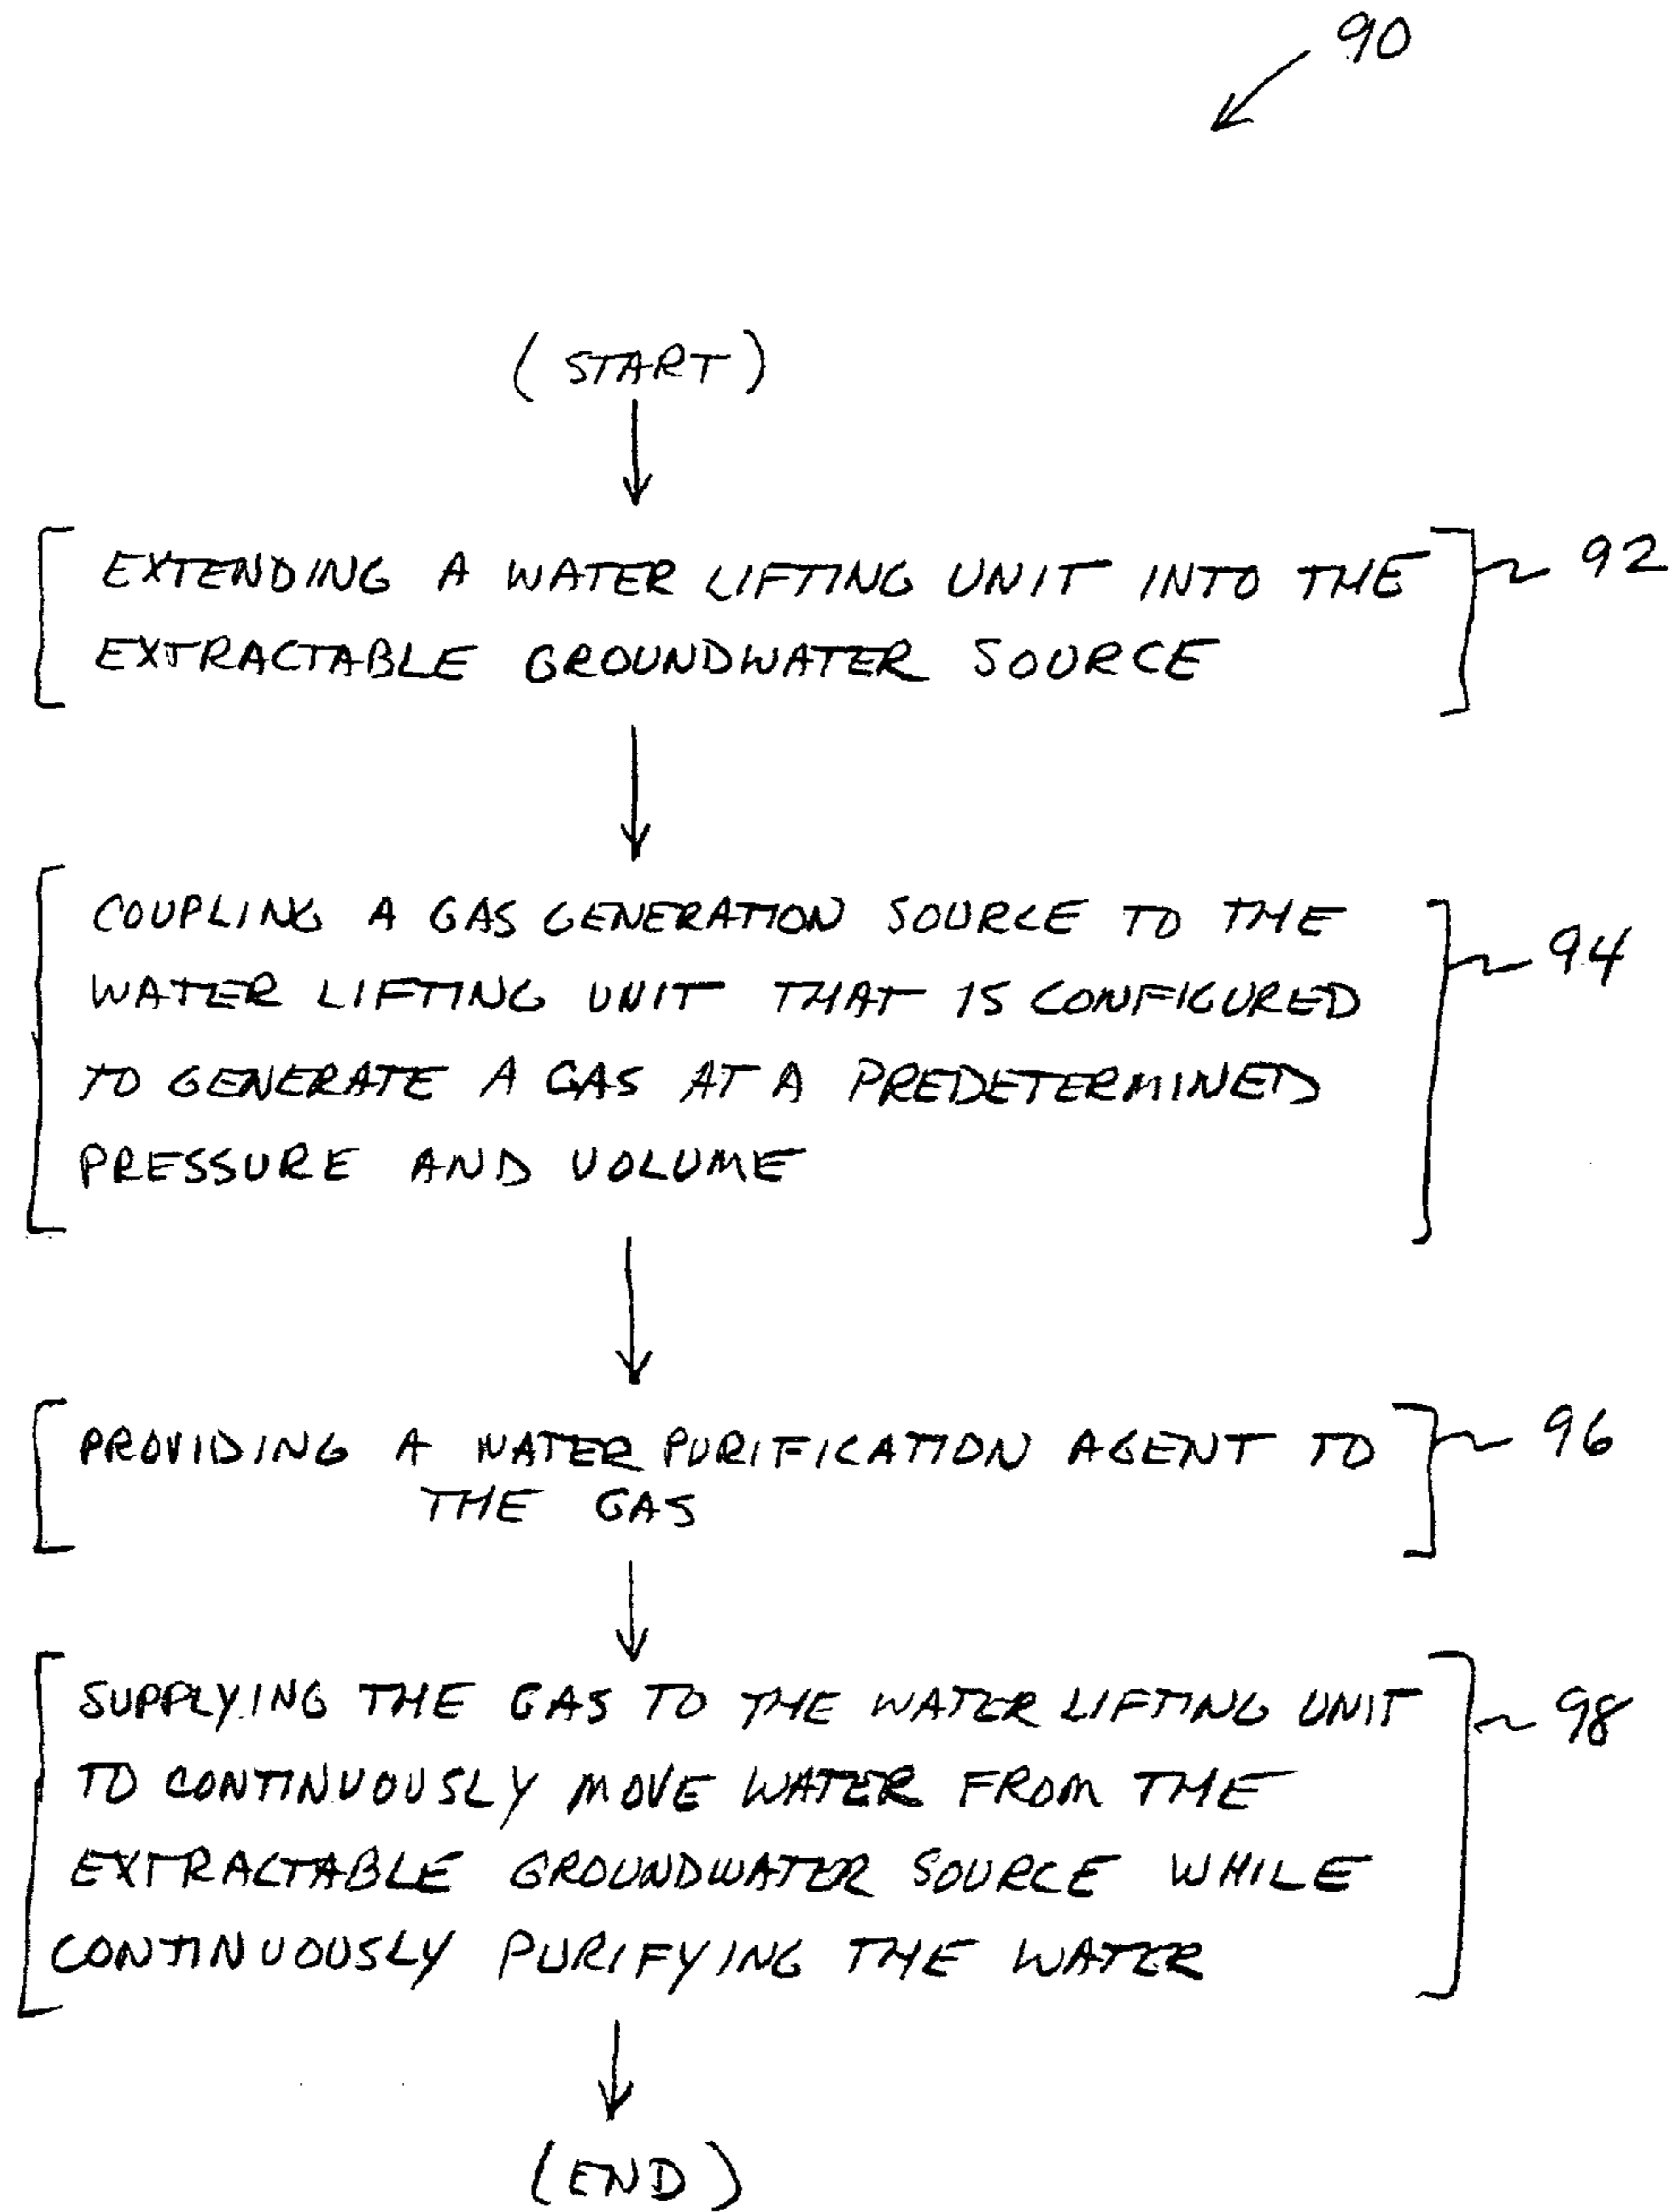 90
(START)
EXTENDING A WATER LIFTING UNIT INTO THE 92
EXTRACTABLE GROUNDWATER SOURCE
COUPLING A GAS GENERATION SOURCE TO THE
WATER LIFTING UNIT THAT IS CONFIGURED 94
TO GENERATE A GAS AT A PREDETERMINED
PRESSURE AND VOLUME
PROVIDING A WATER PURIFICATION AGENT TO 96
THE GAS
SUPPLYING THE GAS TO THE WATER LIFTING UNIT 98
TO CONTINUOUSLY MOVE WATER FROM THE
EXTRACTABLE GROUNDWATER SOURCE WHILE
CONTINUOUSLY PURIFYING THE WATER
(END)